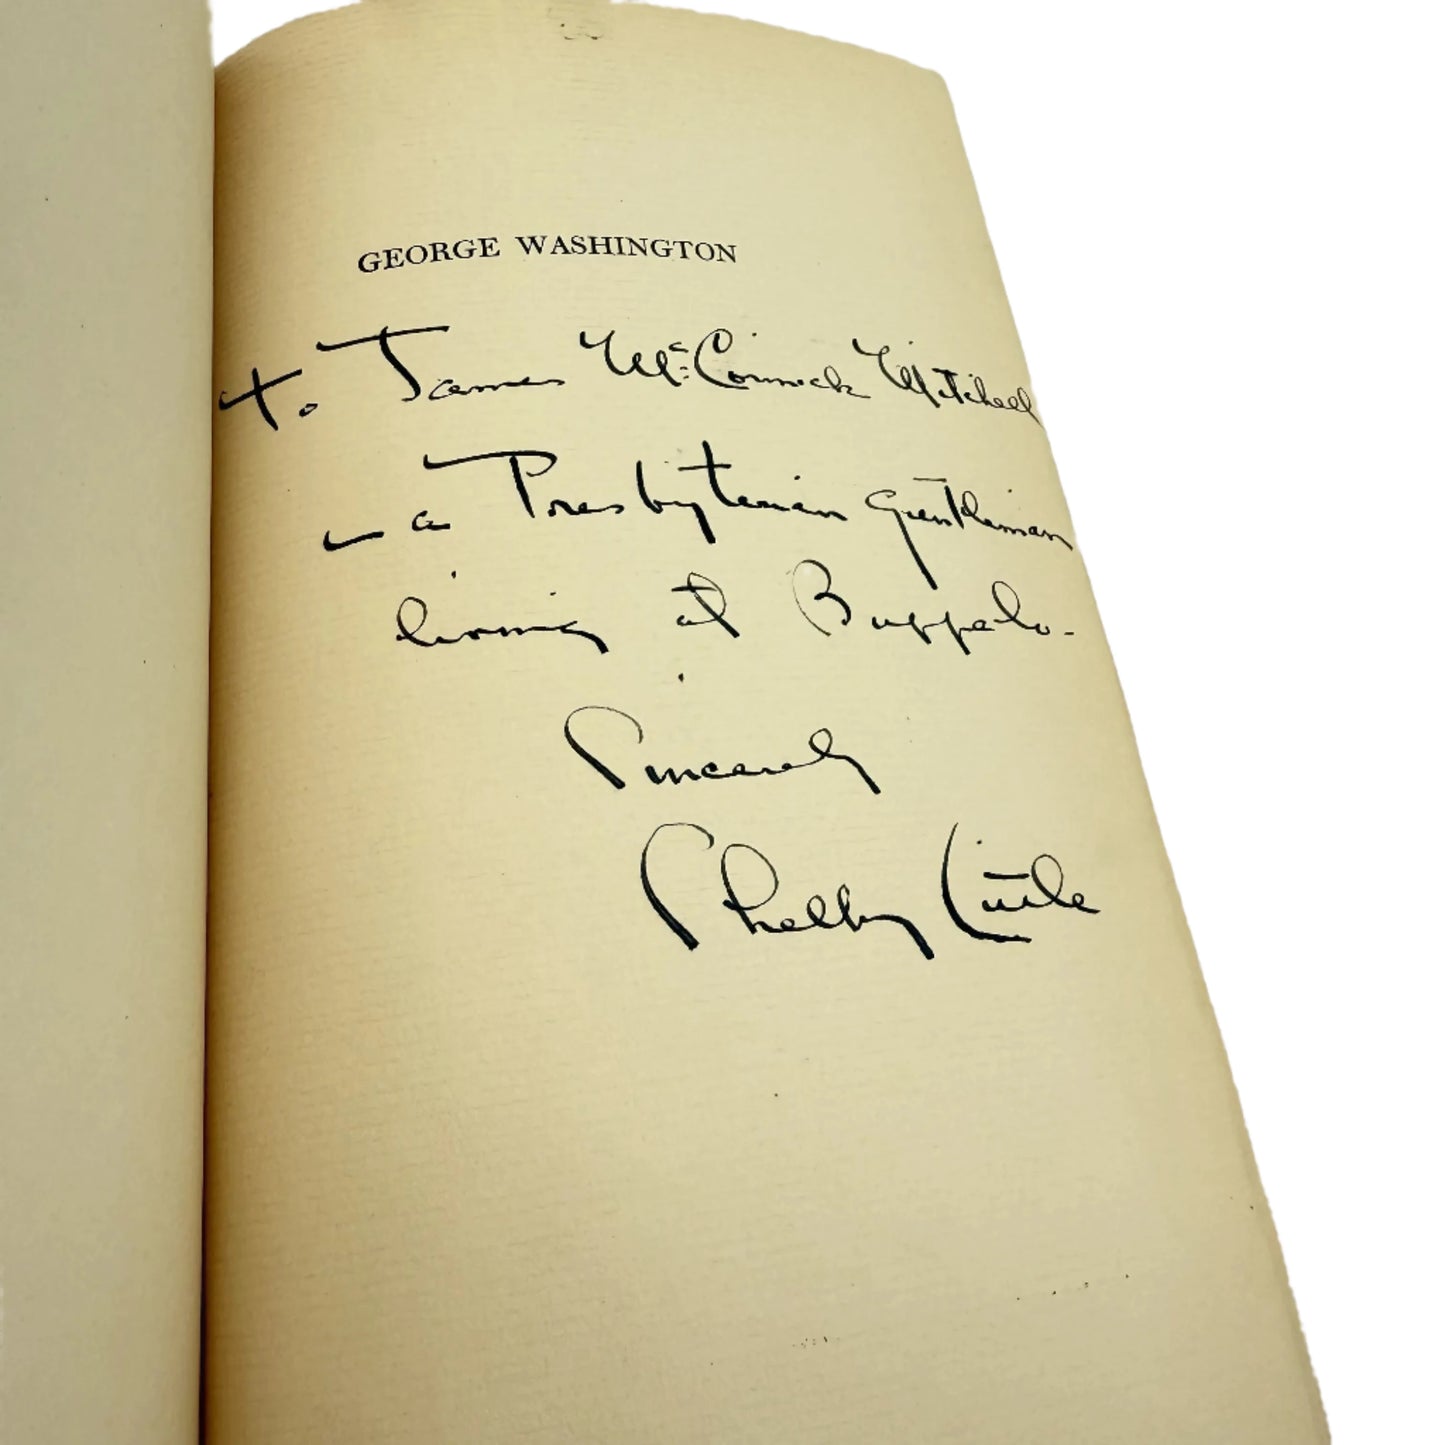 GEORGE WASHINGTON
To James McCormick Mitchell
— a Presbyterian gentleman
living at Buffalo.
Sincerely
Shelby Little